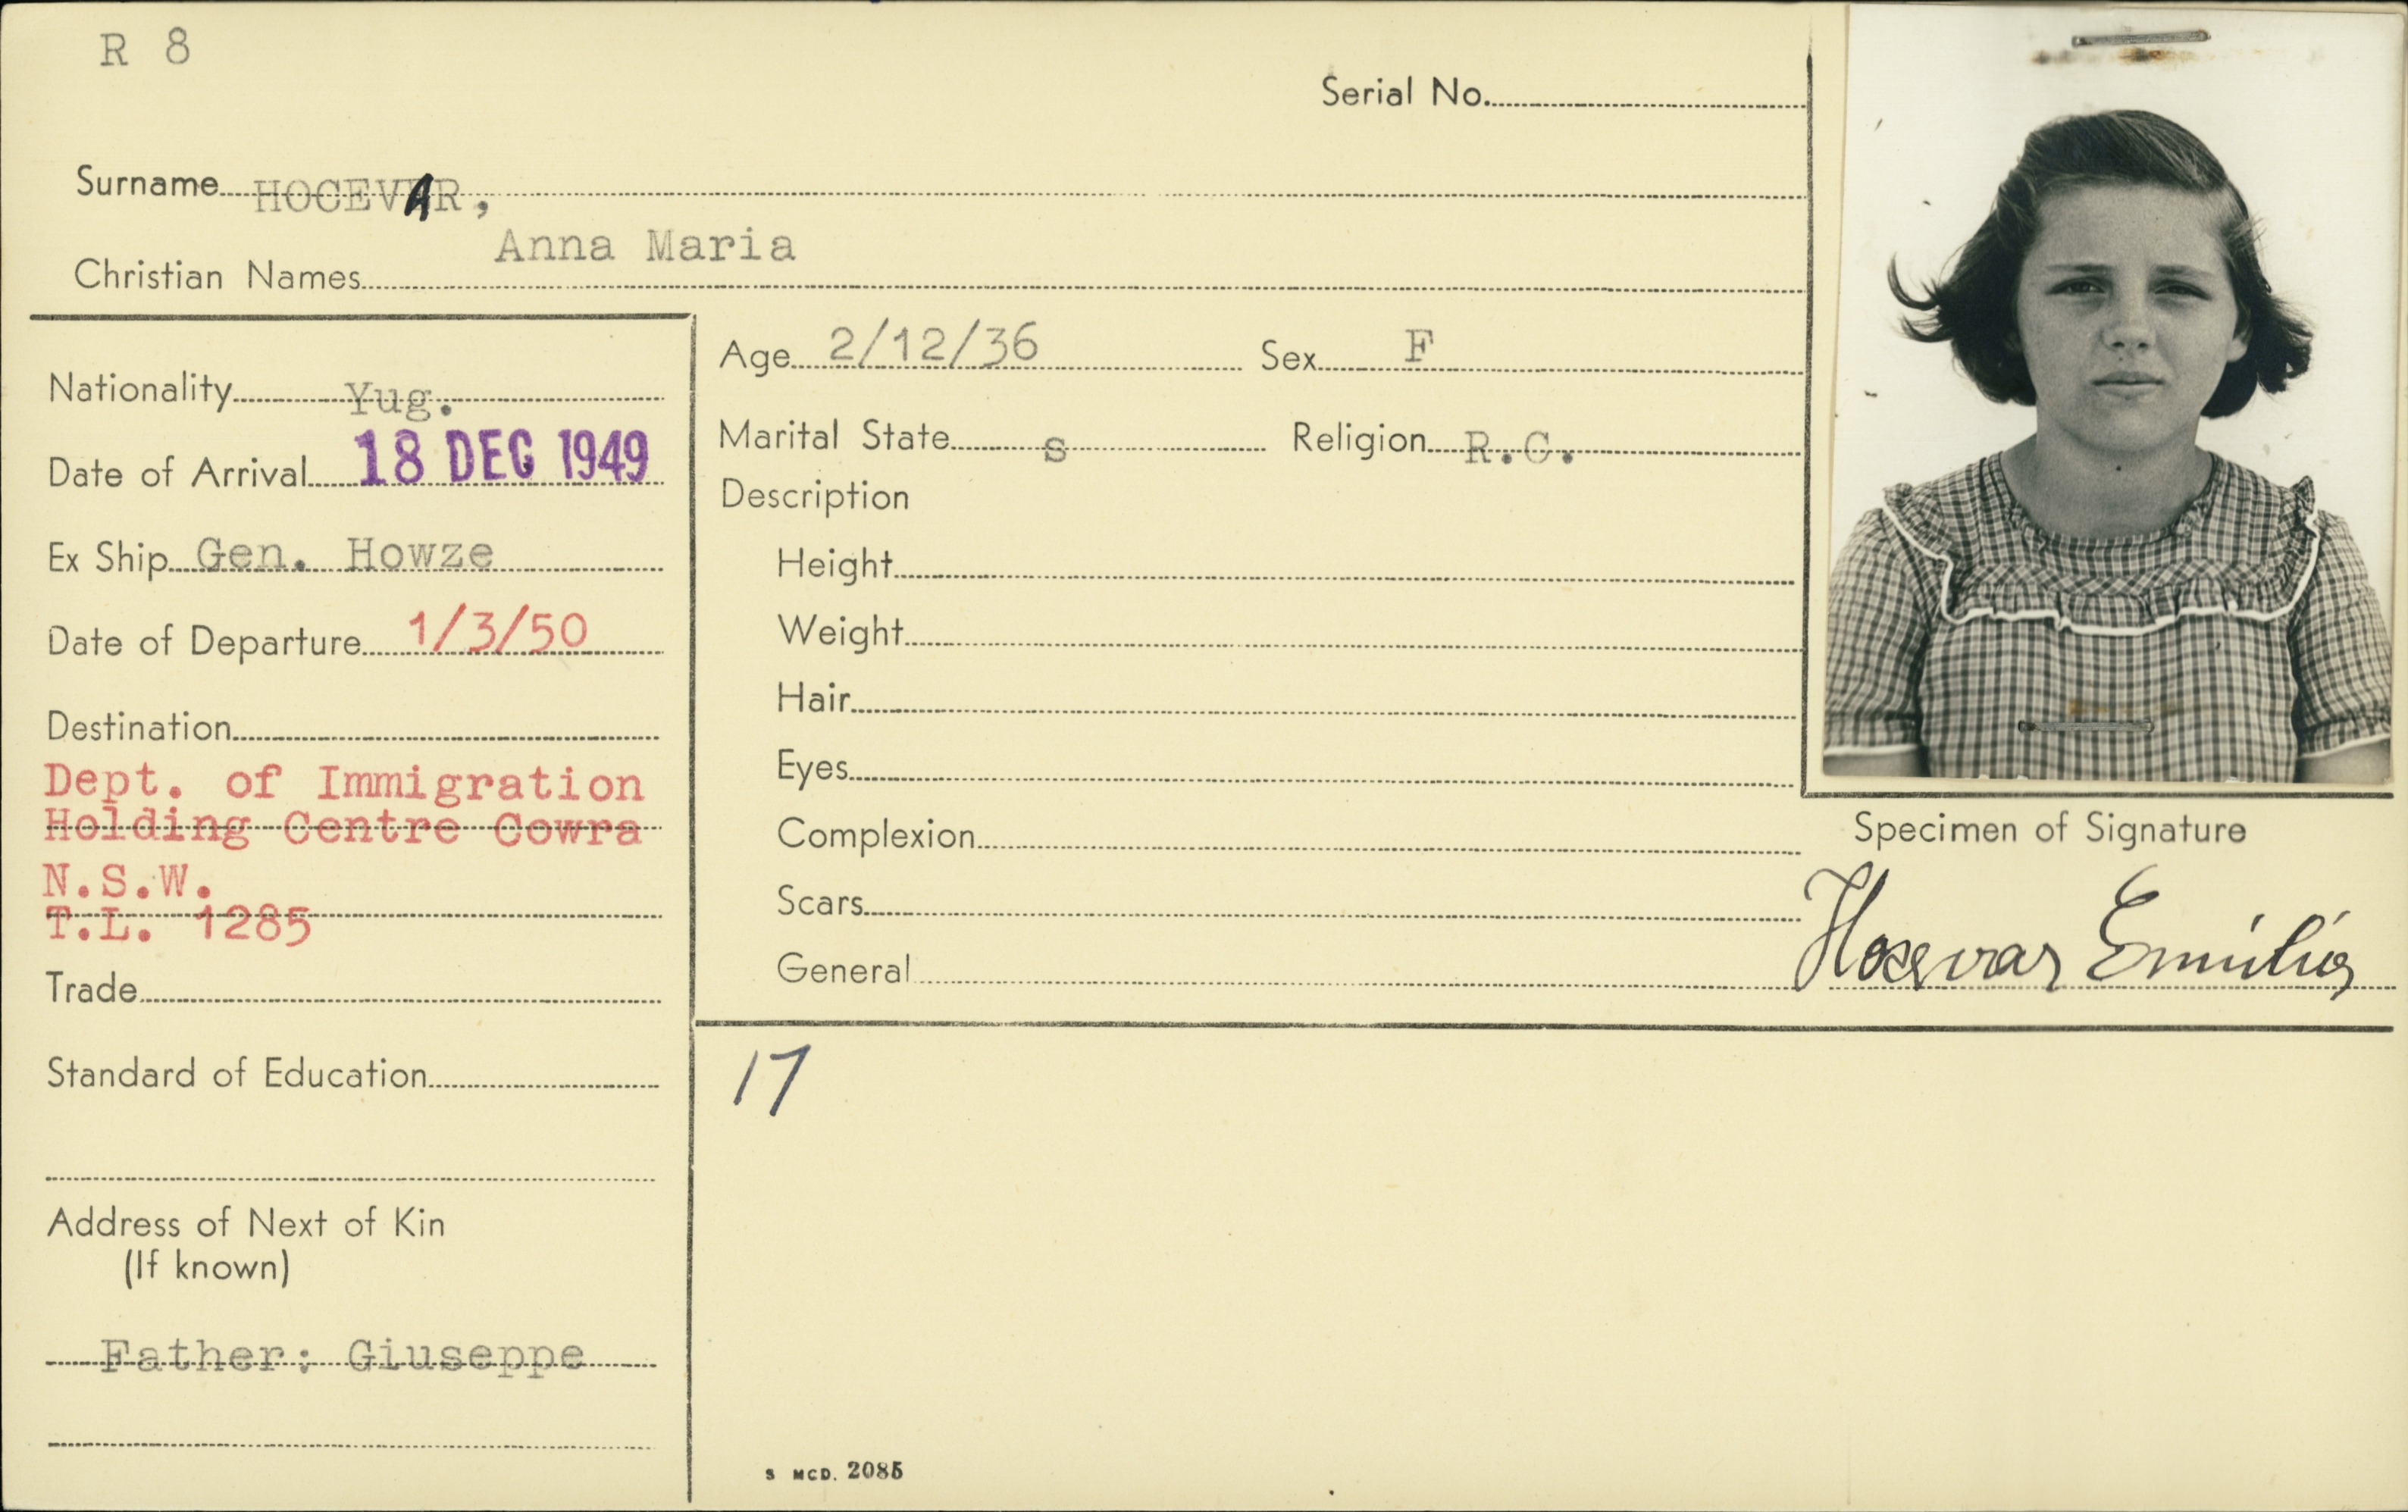 R 8
Serial No.
Surname HOCEVAR,
Christian Names Anna Maria
Nationality Yug.
Date of Arrival 18 DEC 1949
Ex Ship Gen. Howze
Date of Departure 1/3/50
Destination
Dept. of Immigration
Holding Centre Cowra
N.S.W.
T.L. 1285
Trade
Standard of Education
Address of Next of Kin
(If known)
Father: Giuseppe
Age 2/12/36 Sex F
Marital State s Religion R.C.
Description
Height
Weight
Hair
Eyes
Complexion
Scars
General
Specimen of Signature
Hocevar Emilia
17
S MCD. 2085